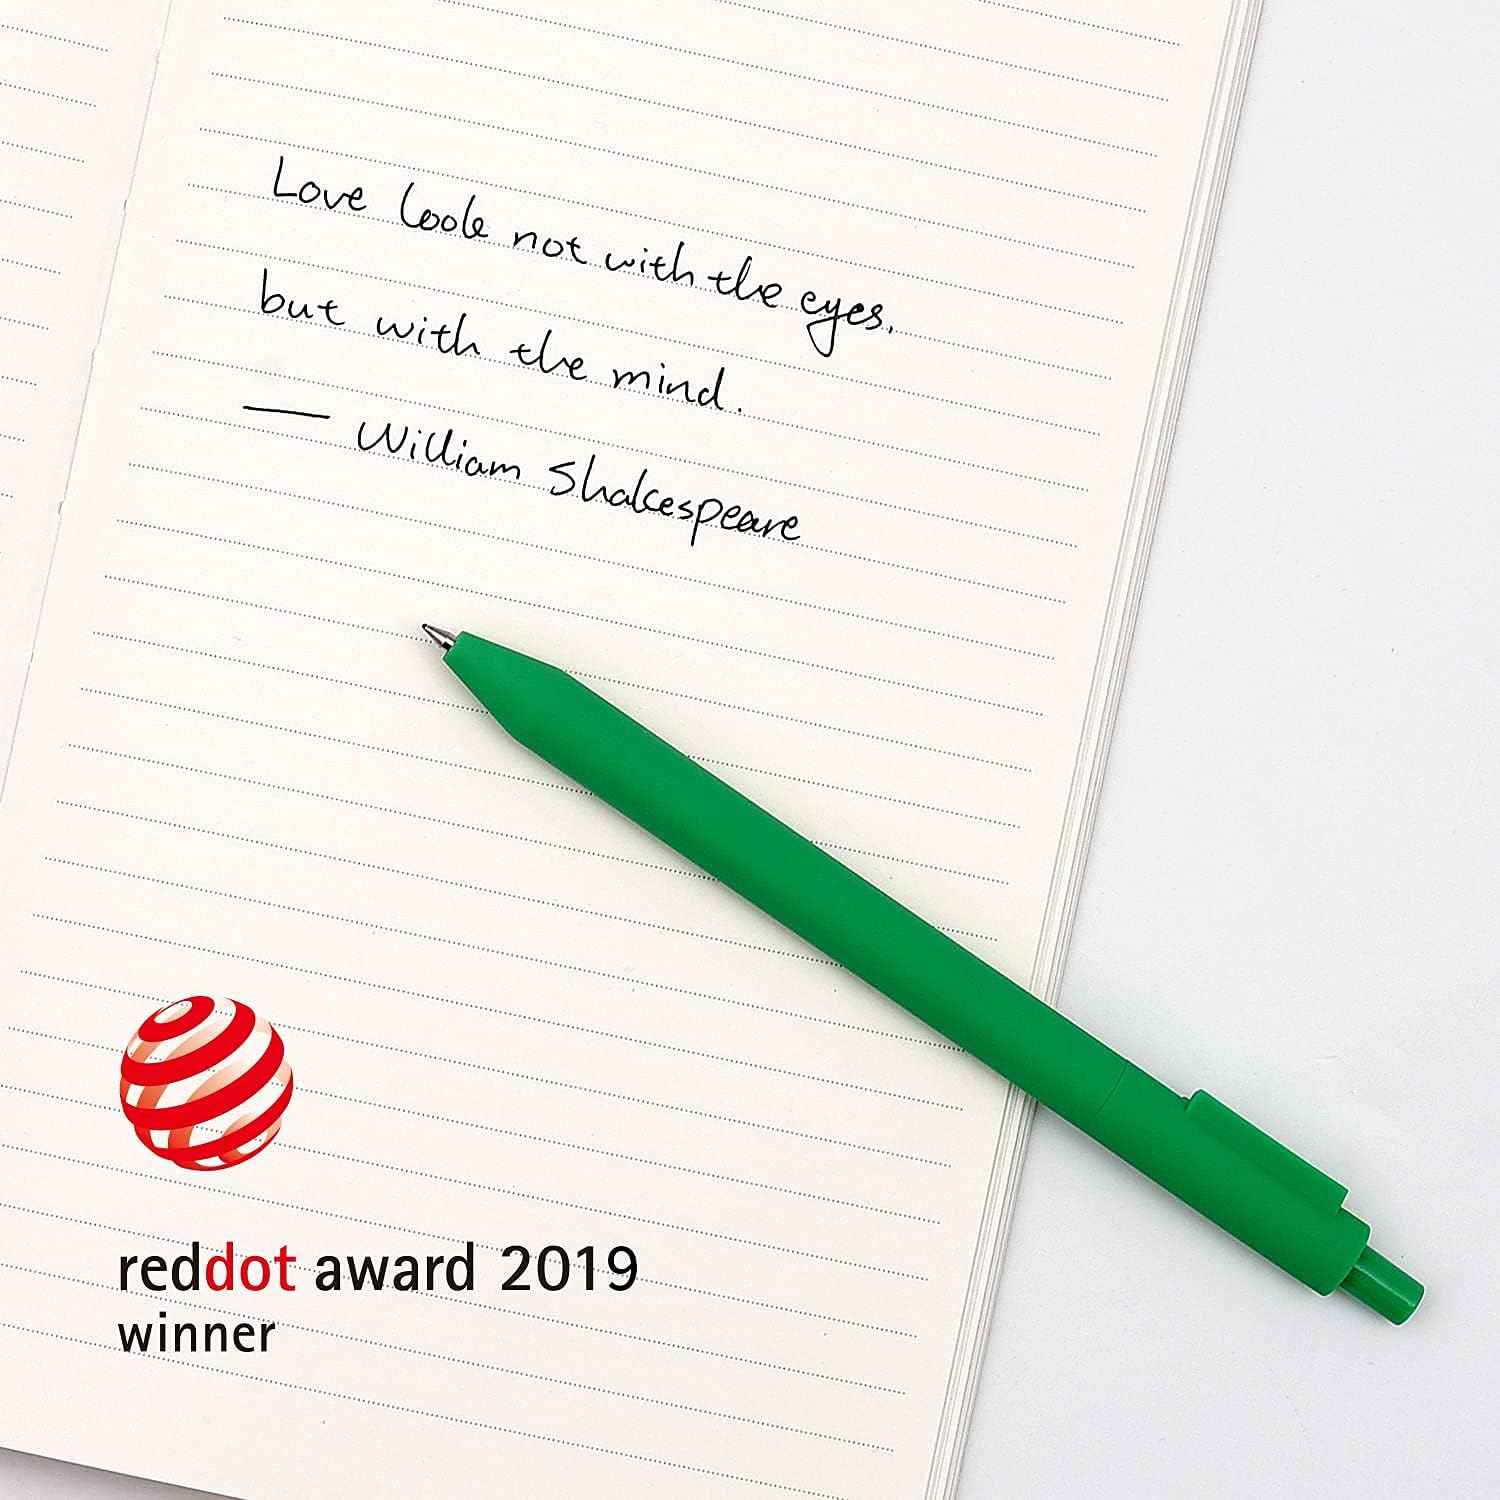 Love look not with the eyes,
but with the mind.
— William Shakespeare
reddot award 2019
winner